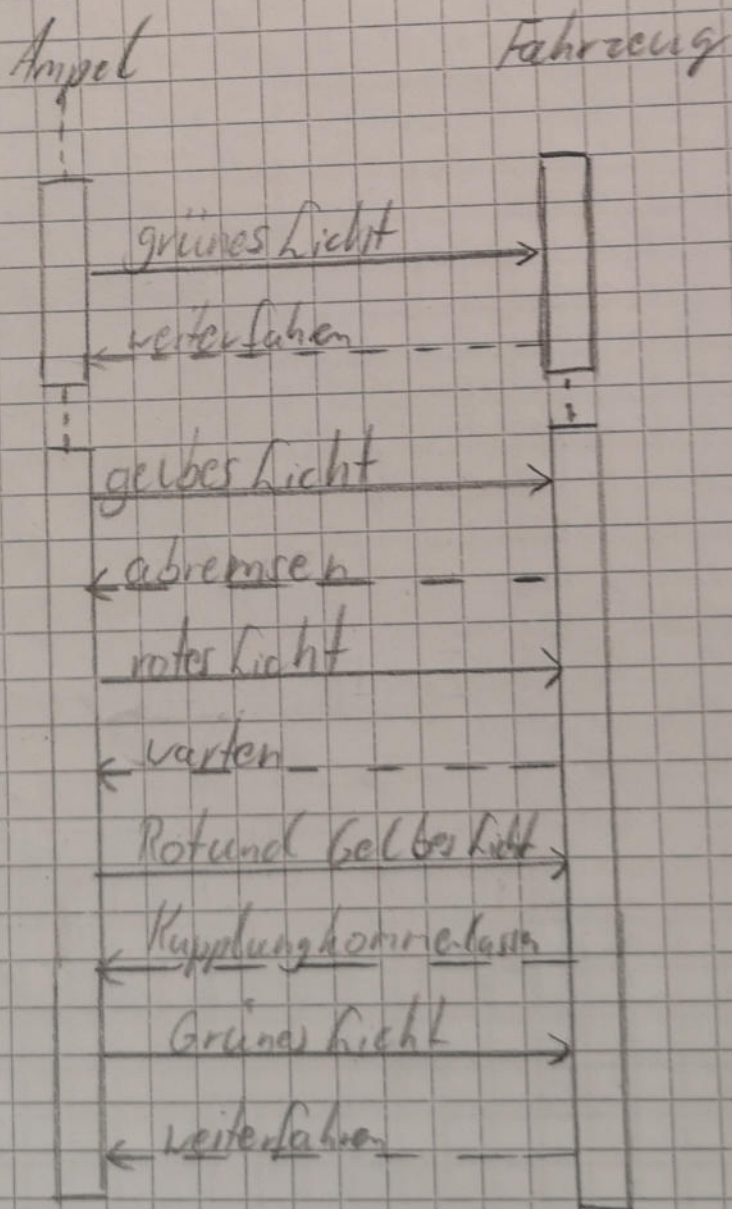 Ampel Fahrzeug
grünes Licht
weiterfahen
gelbes Licht
abremsen
rotes Licht
warten
Rot und Gelbes Licht
Kupplung komme lassn
Grünes Licht
weiterfahren